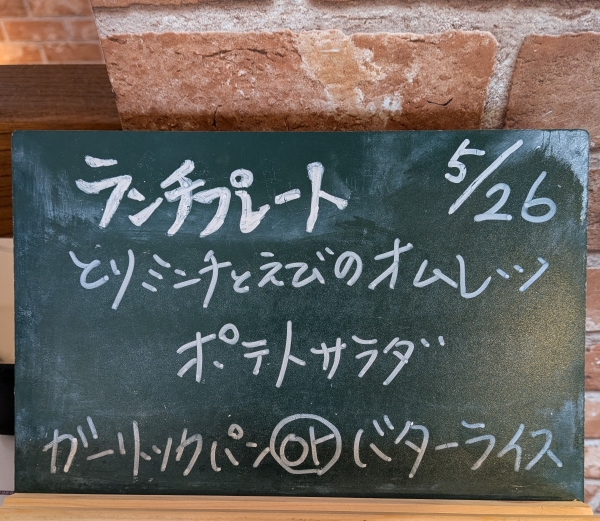 ランチプレート 5/26
とりミンチとえびのオムレツ
ポテトサラダ
ガーリックパン or バターライス